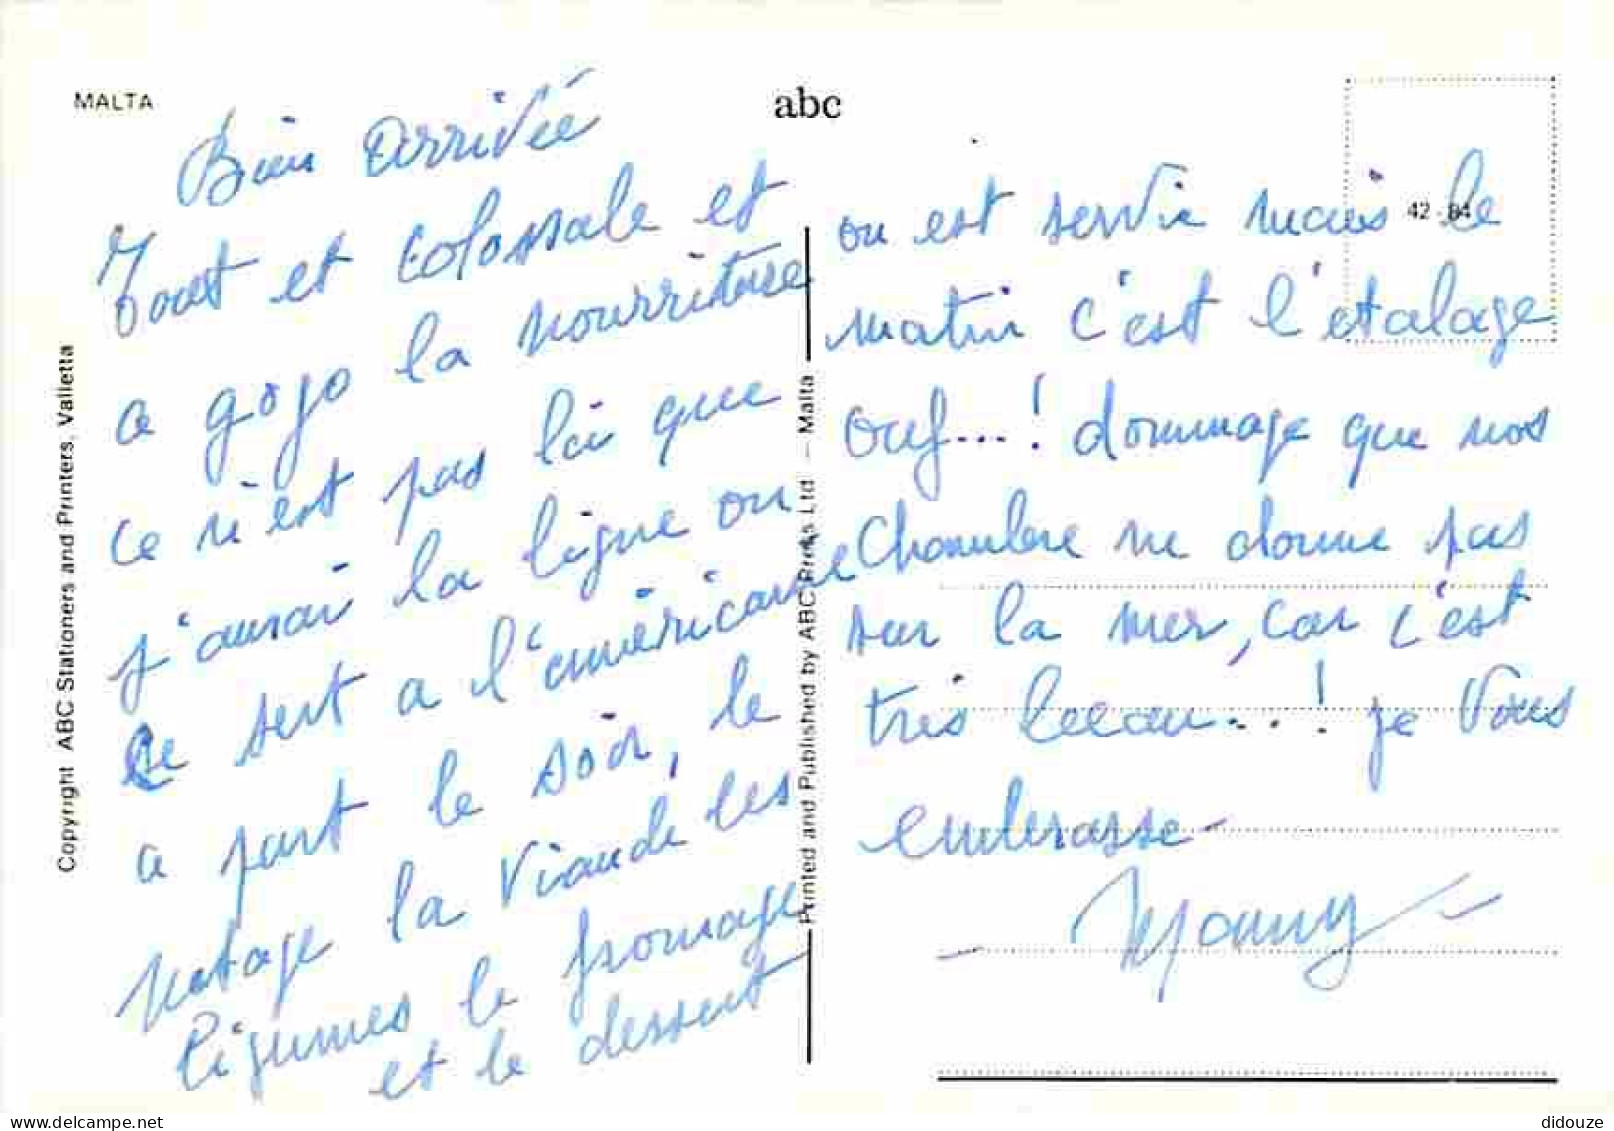 MALTA
abc
42 - 84
Bien arrivée
Tout et colossale et
a gogo la nourriture
ce n'est pas la que
j'aurai la ligne on
se sert a l'américaine
a part le soir, le
potage la viande les
légumes le fromage
et le dessert
on est servie mais le
matin c'est l'etalage
ouf...! dommage que nos
chambre ne donne pas
sur la mer, car c'est
très beau...! je vous
embrasse -
- Mamy -
Copyright ABC Stationers and Printers, Valletta
Printed and Published by ABC Prints Ltd - Malta
didouze